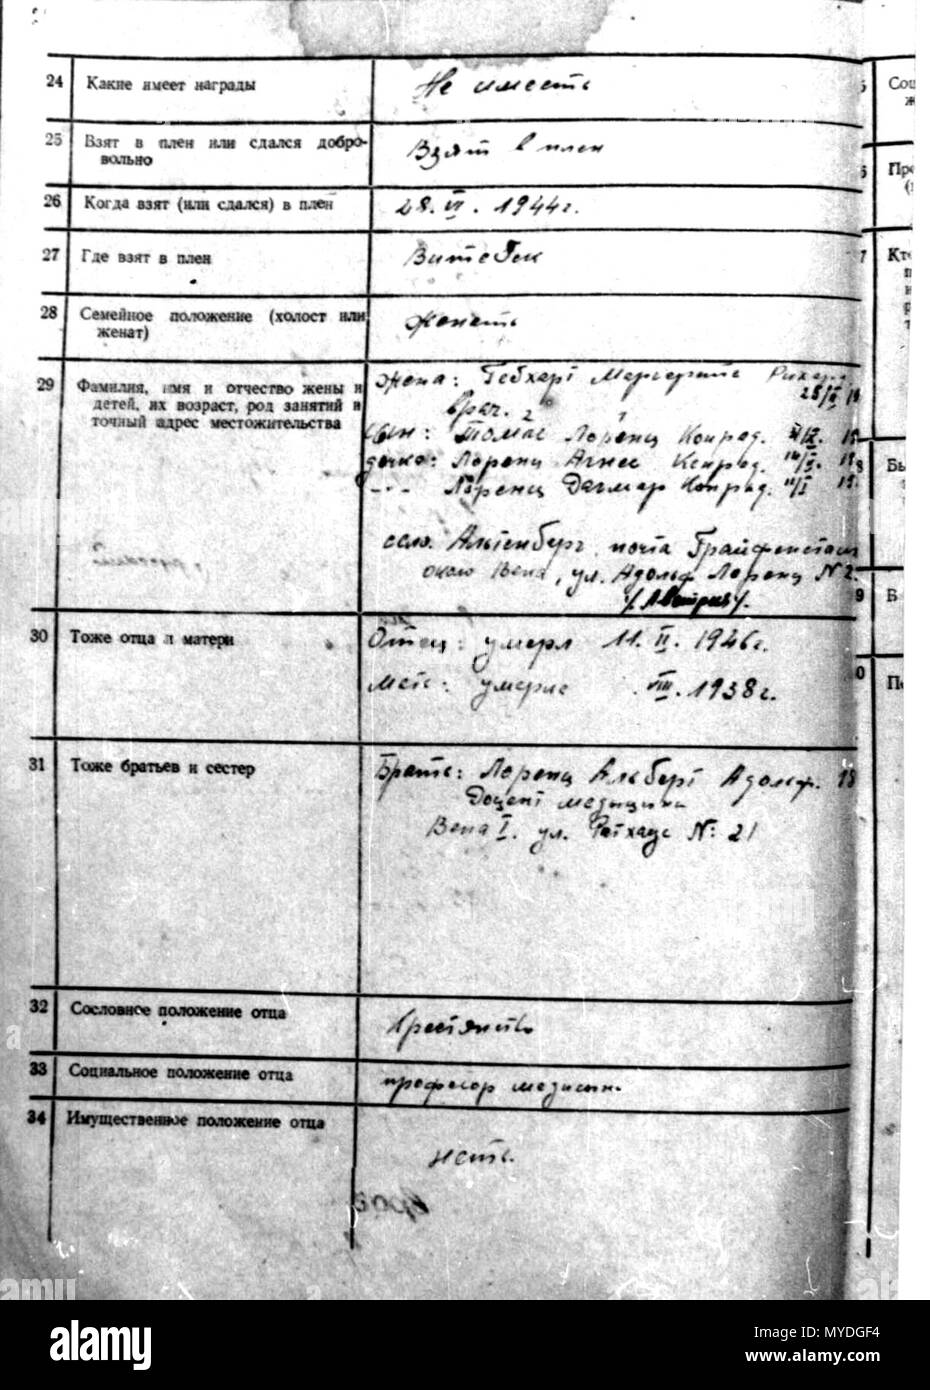 24 Какие имеет награды Не иместь
25 Взят в плен или сдался добро-
вольно Взят в плен
26 Когда взят (или сдался) в плен 28. VI. 1944г.
27 Где взят в плен Витебск
28 Семейное положение (холост или
женат) женать
29 Фамилия, имя и отчество жены и
детей, их возраст, род занятий и
точный адрес местожительства
жена: Гебхарт Маргарите Рихард
врач.
сын: Томас Лоренц Конрад.
дочка: Лоренц Агнес Конрад.
-"- Лоренц Дагмар Конрад.
село. Альтенберг, почта Грайфенстайн
около Вена, ул. Адольф Лоренц № 2.
/Австрия/.
30 Тоже отца и матери Отец: умерл 11. II. 1946г.
Мать: умерла VIII. 1938г.
31 Тоже братьев и сестер Брать: Лоренц Альберт Адольф. 18
Доцент медицина
Вена I. ул. Ратхаус №: 21
32 Сословное положение отца Крестянство
33 Социальное положение отца професор медисин.
34 Имущественное положение отца
нсть.
Соц
Кто
Бы
В
По
alamy
MYDGF4
www.alamy.com